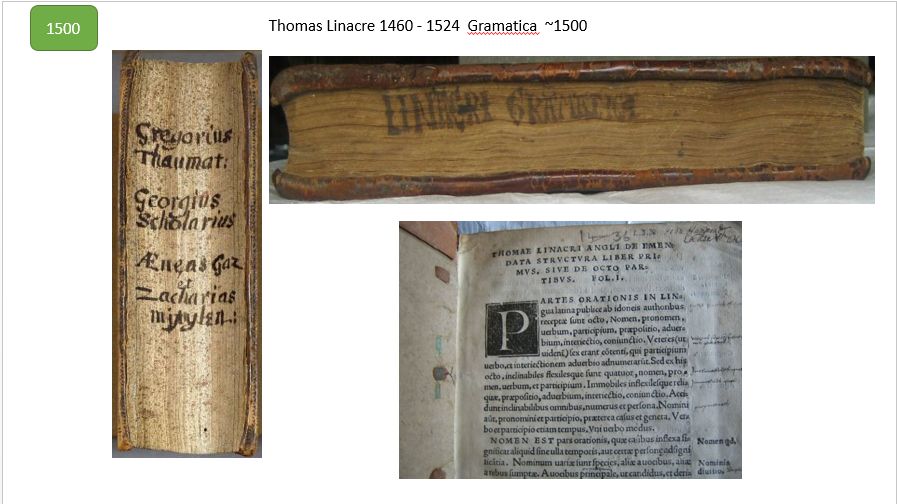 1500
Thomas Linacre 1460 - 1524 Gramatica ~1500
Gregorius
Thaumat:
Georgius
Scholarius
Æneas Gaz
et
Zacharias
mitylen.:
LINACRI GRAMATICA
THOMAE LINACRI ANGLI DE EMEN⸗
DATA STRVCTVRA LIBER PRI⸗
MVS. SIVE DE OCTO PAR⸗
TIBVS. FOL. I.
PARTES ORATIONIS IN LIN⸗
gua latina publice ab idoneis authoribus
receptæ sunt octo, Nomen, pronomen,
uerbum, participium, præpositio, aduer⸗
bium, interiectio, coniunctio. Veteres (ut
uidetur) sex erant, qui participium
uerbo, et interiectionem aduerbio adnumerarūt. Sed ex his
octo, inclinabiles flexilesque sunt quatuor, nomen, prono⸗
men, uerbum, et participium. Immobiles inflexilesque reli⸗
quæ, præpositio, aduerbium, interiectio, coniunctio. Acci⸗
dunt inclinabilibus omnibus, numerus et persona. Nomini
aūt, pronomini et participio, præterea casus et genera. Ver⸗
bo et participio etiam tempus. Vni uerbo modus.
NOMEN EST pars orationis, quæ casibus inflexa si⸗
gnificat aliquid sine ulla temporis, aut certæ personæ signi⸗
ficatia. Nominum uariæ sunt species, aliæ a uocibus, aliæ
a rebus sumptæ. A uocibus principale, ut candidus, et deri⸗
Nomen qd.
Nominis
diuisio.